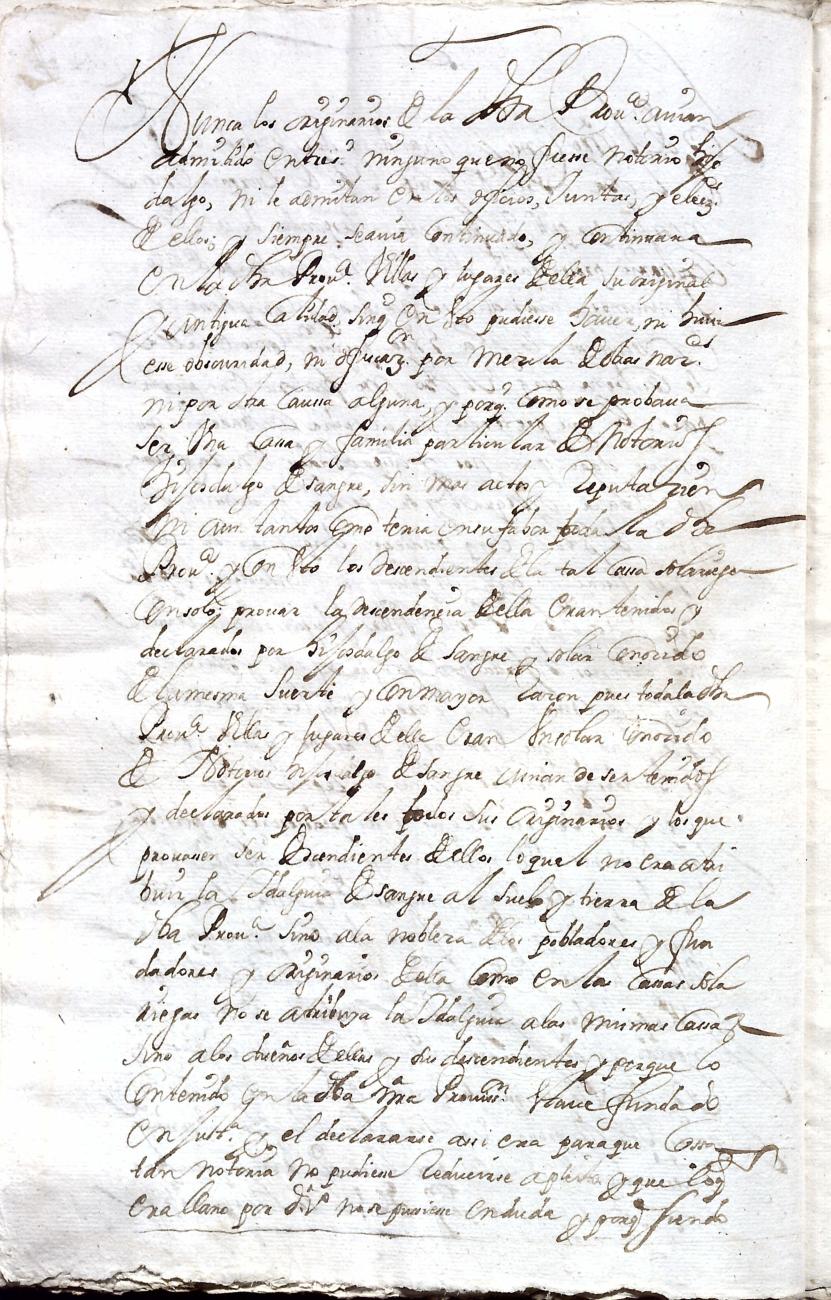 Nunca los originarios de la dha Prou.ª auian
admitido entresi ninguno que no fuesse notorio hijo
dalgo, ni le admitian en los oficios, Juntas, y elecs.
de ellos; y siempre seauia continuado, y continuaua
en la dha Prou.ª Villas y lugares de ella, su original
y antigua calidad, sinq. en esto pudiesse hauer, ni huui
esse obscuridad, ni ofuscaz.on por mezcla de otras nac.es
ni por otra caussa alguna, y porq. como se probaua
ser Vna cassa y familia particular de Notorios
hijosdalgo de sangre, sin mas actos y Reputazion
ni aun tantos como tenia en su fabor toda la dha
Prou.ª y con esto los descendientes de la tal cassa solariega
con solo prouar la descendençia de ella eran tenidos y
declarados por hijosdalgo de sangre y solar conocido
de la mesma suerte y con mayor Razon pues toda la dha
Prou.ª Villas y lugares de ella eran Vn solar conocido
de Notorios hijosdalgo de sangre auian de ser tenidos
y declarados por tales todos sus originarios y los que
prouassen ser descendientes de ellos lo qual no era atri
buir la Idalguia de sangre al suelo y tierra de la
dha Prou.ª sino ala nobleza de los pobladores y fun
dadores y originarios de ella como en las cassas sola
riegas no se atribuya la Idalguia a las mismas cassas
sino a los dueños de ellas y sus descendientes, y porque lo
contenido en la dha nra Prouis.on estaua fundado
en just.ª y el declararse assi era paraque cossa
tan notoria no pudiese Reducirse a pleito y que loq.
era llano por dr.º no se pusiesse en duda y porq. siendo